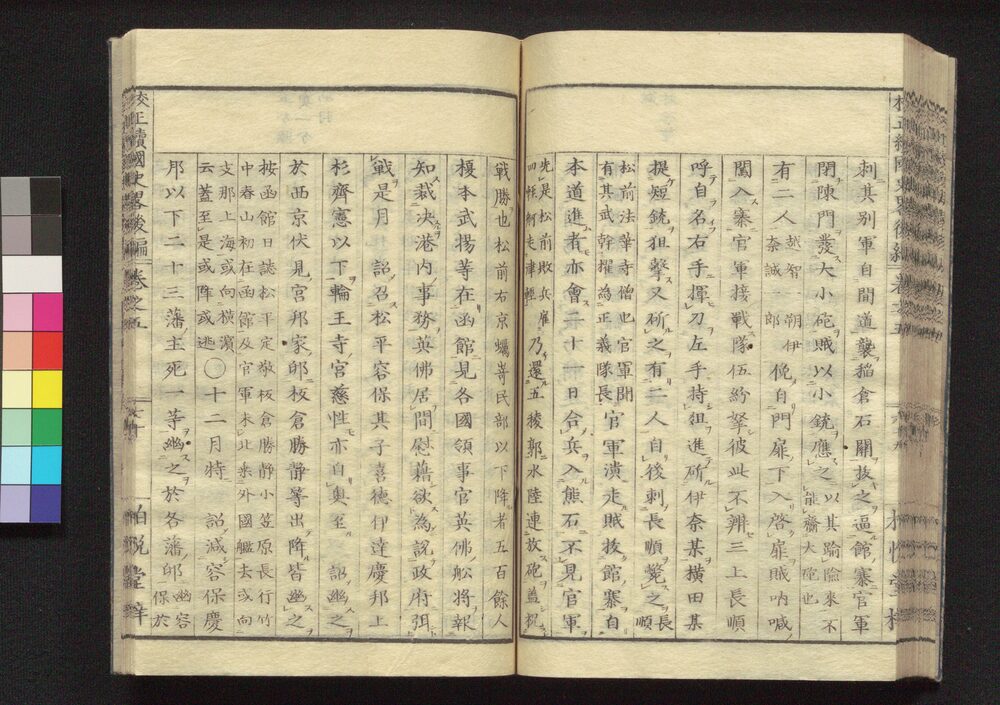 刺其別軍自間道襲稲倉石關抜之逼館寨官軍
閉陳門發大小砲賊以小銃應之以其踰險來不能齎大砲也
有二人越智一朔伊奈誠一郎俛自門扉下入啓扉賊吶喊
闖入寨官軍接戰隊伍紛拏彼此不辨三上長順
呼自名右手揮刀左手持𨥫進斫伊奈某横田某
提短銃狙撃又斫之有一人自後刺長順斃之長順
松前法華寺僧也官軍聞有其武幹擢為正義隊長官軍潰走賊抜館寨自
本道進者亦會二十日合兵入熊石不見官軍
先是松前敗兵雇四艘舸走津輕乃還五稜郭水陸連放砲蓋祝
戰勝也松前右京蠣嵜民部以下降者五百餘人
榎本武揚等在函館見各國領事官英佛舩将報
知裁决港内事務英佛居間慰藉欲為説政府弭
戰是月詔召松平容保其子喜德伊達慶邦上
杉齊憲以下輪王寺宮慈性亦自奥至詔幽之
於西京伏見宮邦家邸板倉勝静等出降皆幽之
按函館日誌松平定敬板倉勝静小笠原長行竹
中春山初在函館及官軍未北來外國艦去或向
支那上海或向横濱云蓋至是或降或逃〇十二月特詔減容保慶
邦以下二十三藩主死一等幽之於各藩邸幽容保於
校正續國史畧後編卷之五
柏悦堂梓